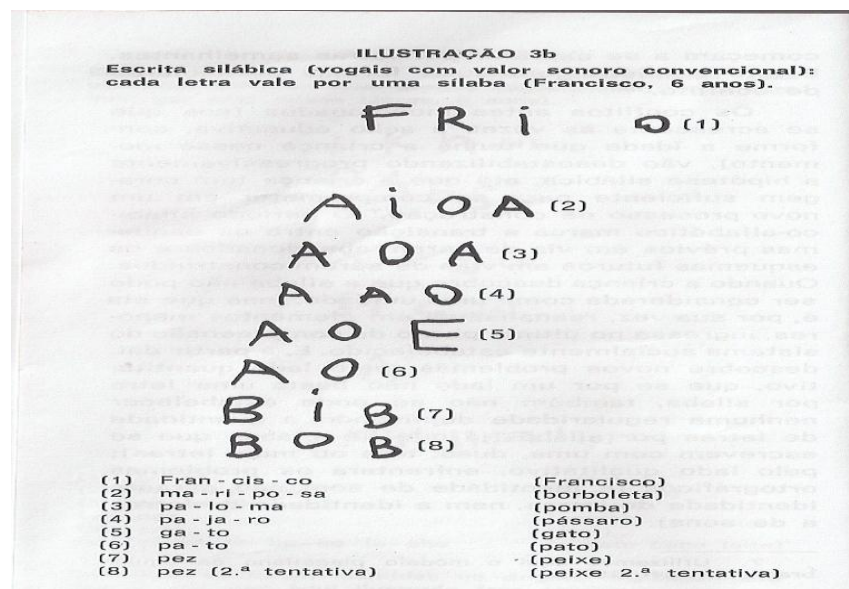 ILUSTRAÇÃO 3b
Escrita silábica (vogais com valor sonoro convencional):
cada letra vale por uma sílaba (Francisco, 6 anos).
F R i O (1)
A i O A (2)
A O A (3)
A A O (4)
A O E (5)
A O (6)
B i B (7)
B O B (8)
(1) Fran - cis - co (Francisco)
(2) ma - ri - po - sa (borboleta)
(3) pa - lo - ma (pomba)
(4) pa - ja - ro (pássaro)
(5) ga - to (gato)
(6) pa - to (pato)
(7) pez (peixe)
(8) pez (2.ª tentativa) (peixe 2.ª tentativa)